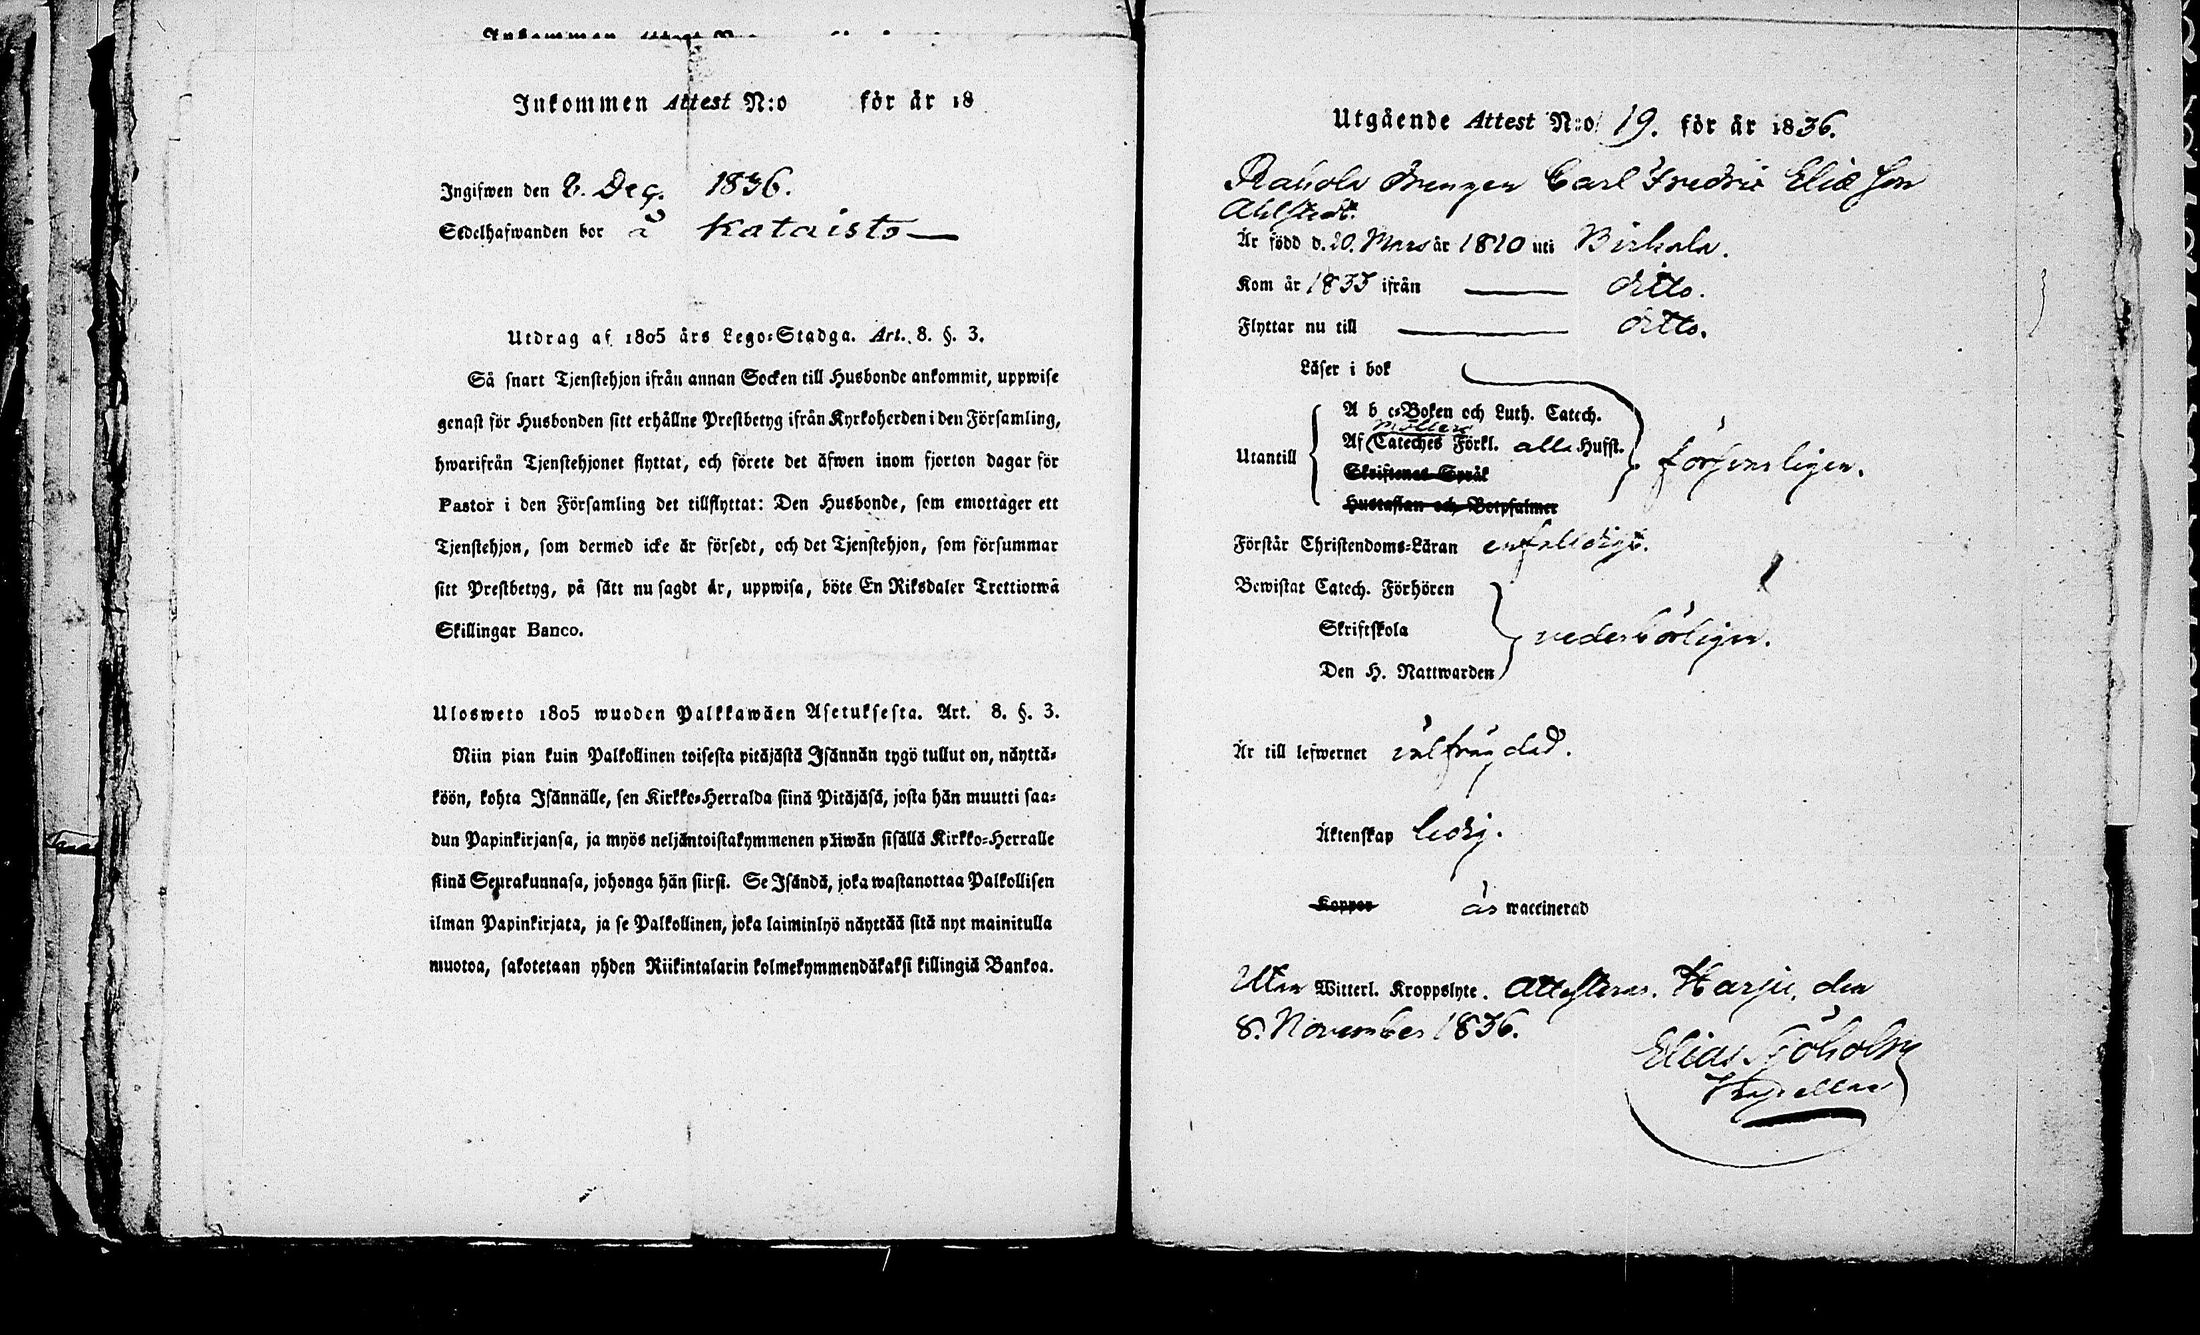 Inkommen Attest N:o för år 18
Ingifwen den 8. Dec. 1836.
Sedelhafwanden bor å Kataisto
Utdrag af 1805 års Lego-Stadga. Art. 8. §. 3.
Så snart Tjenstehjon ifrån annan Socken till Husbonde ankommit, uppwise
genast för Husbonden sitt erhållne Prestbetyg ifrån Kyrkoherden i den Församling,
hwarifrån Tjenstehjonet flyttat, och förete det äfwen inom fjorton dagar för
Pastor i den Församling det tillflyttat: Den Husbonde, som emottager ett
Tjenstehjon, som dermed icke är försedt, och det Tjenstehjon, som försummar
sitt Prestbetyg, på sätt nu sagdt är, uppwisa, böte En Riksdaler Trettiotwå
Skillingar Banco.
Ulosweto 1805 wuoden Palkkawäen Asetuksesta. Art. 8. §. 3.
Niin pian kuin Palkollinen toisesta pitäjästä Isännän tygö tullut on, näyttä-
köön, kohta Isännälle, sen Kirkko-Herralda siinä Pitäjäsä, josta hän muutti saa-
dun Papinkirjansa, ja myös neljäntoistakymmenen päiwän sisällä Kirkko-Herralle
siinä Seurakunnasa, johonga hän siirsi. Se Isändä, joka wastanottaa Palkollisen
ilman Papinkirjata, ja se Palkollinen, joka laiminlyö näyttää sitä nyt mainitulla
muotoa, sakotetaan yhden Riikintalarin kolmekymmendäkaksi killingiä Bankoa.
Utgående Attest N:o 19. för år 1836.
Rahola Drengen Carl Fredric Eliæ Son
Ahlstedt.
Är född d. 20. Mars år 1810 uti Birkala.
Kom år 1833 ifrån ditto.
Flyttar nu till ditto.
Läser i bok
A b c-Boken och Luth. Catech.
Möllers
Utantill Af Cateches Förkl. alla Hufst. försvarligen.
Skriftenes Språk
Hustaflan och Botpsalmer
Förstår Christendoms-Läran enfaldigt.
Bewistat Catech. Förhören
Skriftskola vederbörligen.
Den H. Nattwarden
Är till lefwernet välfrägdad.
Äktenskap ledig.
Koppor är waccinerad
Utan Witterl. Kroppslyte. Attesteras. Harju, den
8. November 1836.
Elias Sjöholm
Kapellan